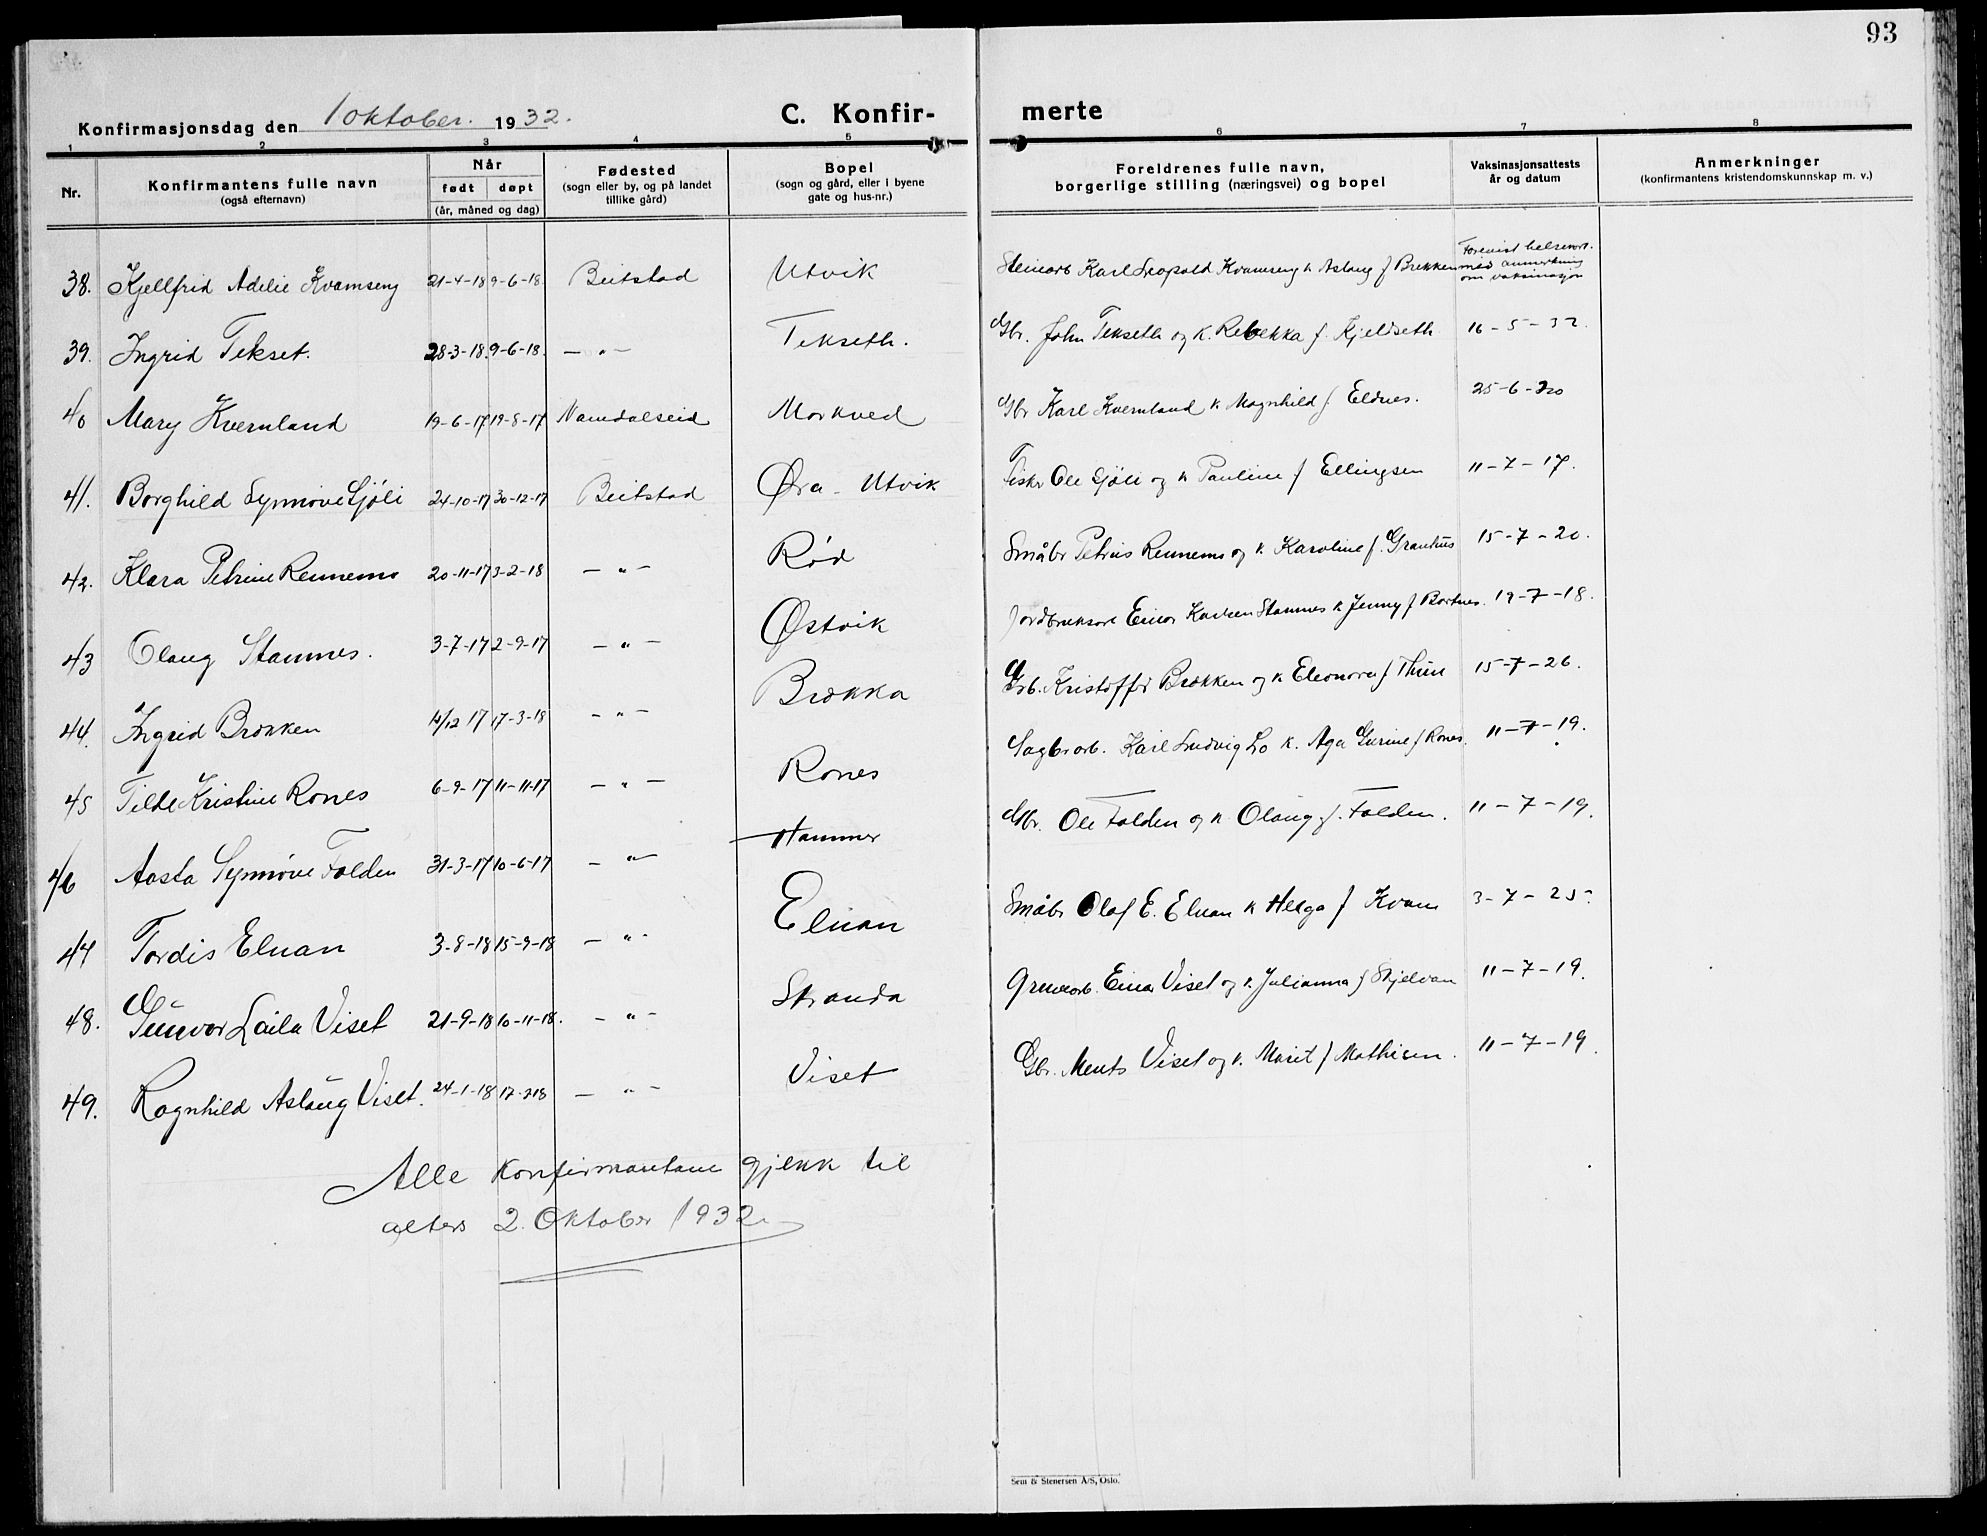 93
Konfirmasjonsdag den 1 oktober. 1932.
C. Konfir-
merte
1 2 3 4 5 6 7 8
Nr.
Konfirmantens fulle navn
(også efternavn)
Når
født døpt
(år, måned og dag)
Fødested
(sogn eller by, og på landet
tillike gård)
Bopel
(sogn og gård, eller i byene
gate og hus-nr.)
Foreldrenes fulle navn,
borgerlige stilling (næringsvei) og bopel
Vaksinasjonsattests
år og datum
Anmerkninger
(konfirmantens kristendomskunnskap m. v.)
38. Kjellfrid Adelie Kvamseng 21-4-18 9-6-18. Beitstad Utvik Steinarb Karl Leopold Kvamseng k Aslaug f Brekken Forevist helsevort. med anmerkning om vaksinasjon
39. Ingrid Tekset. 28-3-18. 9-6-18. — " — Tekseth. Gbr. John Tekseth og k. Rebekka f. Kjeldseth 16-5-32.
40 Mary Kvernland 19-6-17 19-8-17 Namdalseid Morkved Gbr Karl Kvernland k Magnhild f Eldnes. 25-6-20
41. Borghild Synnøve Sjøli 24-10-17 30-12-17 Beitstad Øra - Utvik Fisker Ole Sjøli og k Pauline f Ellingsen 11-7-17.
42. Klara Petrine Rennemo 20-11-17 3-2-18 — " — Rød Småbr Petrus Rennemo og k. Karoline f. Granhus 15-7-20.
43 Olaug Stamnes. 3-7-17 2-9-17 — " — Østvik Jordbruksarb Einar Karlsen Stamnes k Jenny f Bartnes. 19-7-18.
44. Ingrid Brøkken 14/12 17 17-3-18 — " — Brøkka Grb. Kristoffer Brøkken og k Eleonora f Thun 15-7-26.
45 Tilde Kristine Rones 6-9-17 11-11-17 — " — Rones Sagbr arb. Karl Ludvig Lo k. Aga Gurine f Rones. 11-7-19.
46 Aasta Synnøve Folden 31-3-17 10-6-17 — " — Hammer Gbr. Ole Folden og k Olaug f. Folden. 11-7-19.
47 Tordis Elnan 3-8-18 15-9-18 — " — Elnan Småbr Olaf E. Elnan k Helga f Kvam 3-7-25.
48. Gunvor Laila Viset 21-9-18 10-11-18. — " — Stranda Gruvearb. Einar Viset og k. Julianna f Skjelvan 11-7-19.
49. Ragnhild Aslaug Viset. 24-1-18 — " — Viset Gbr. Ments Viset og k. Marit f Mathisen. 11-7-19.
Alle konfirmantane gjekk til
alters 2. Oktober 1932.
Sem & Stenersen A/S, Oslo.